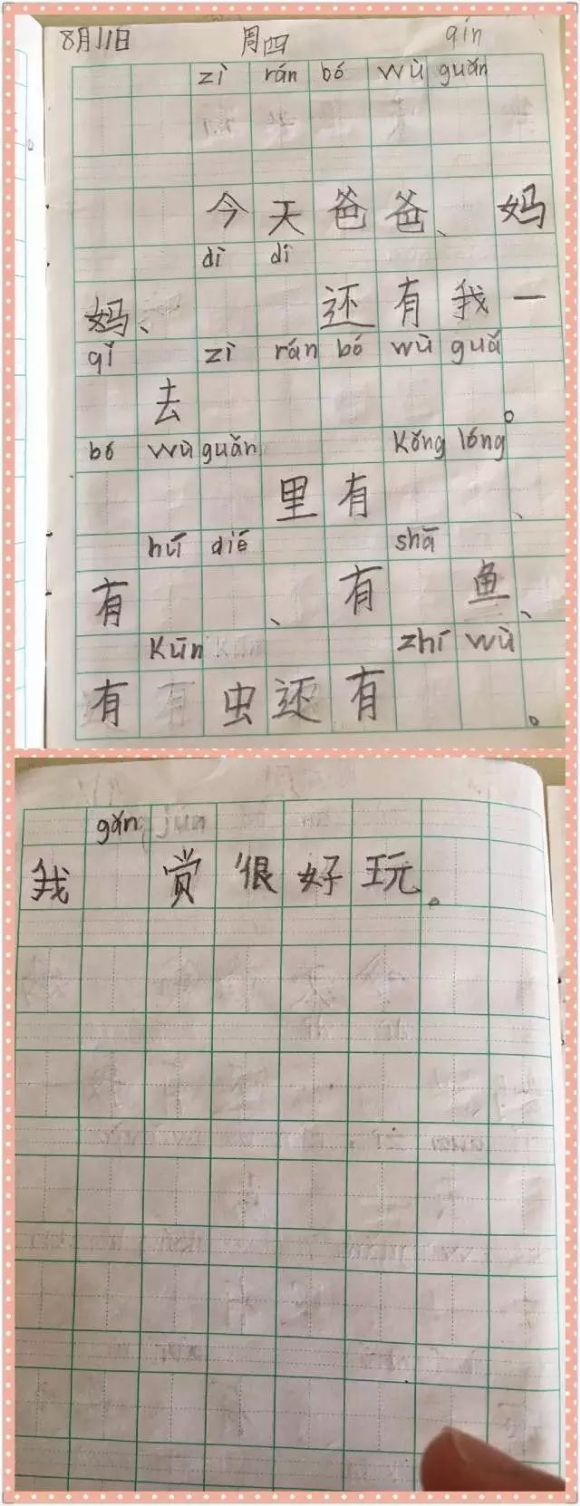 8月11日 周四 qín
zì rán bó wù guǎn
今天爸爸、妈
dì di
妈、还有我一
qǐ zì rán bó wù guǎ
去。
bó wù guǎn kǒng lóng
里有、
hú dié shā
有、有鱼、
Kūn zhí wù
有虫还有。
gǎn
我赏很好玩。